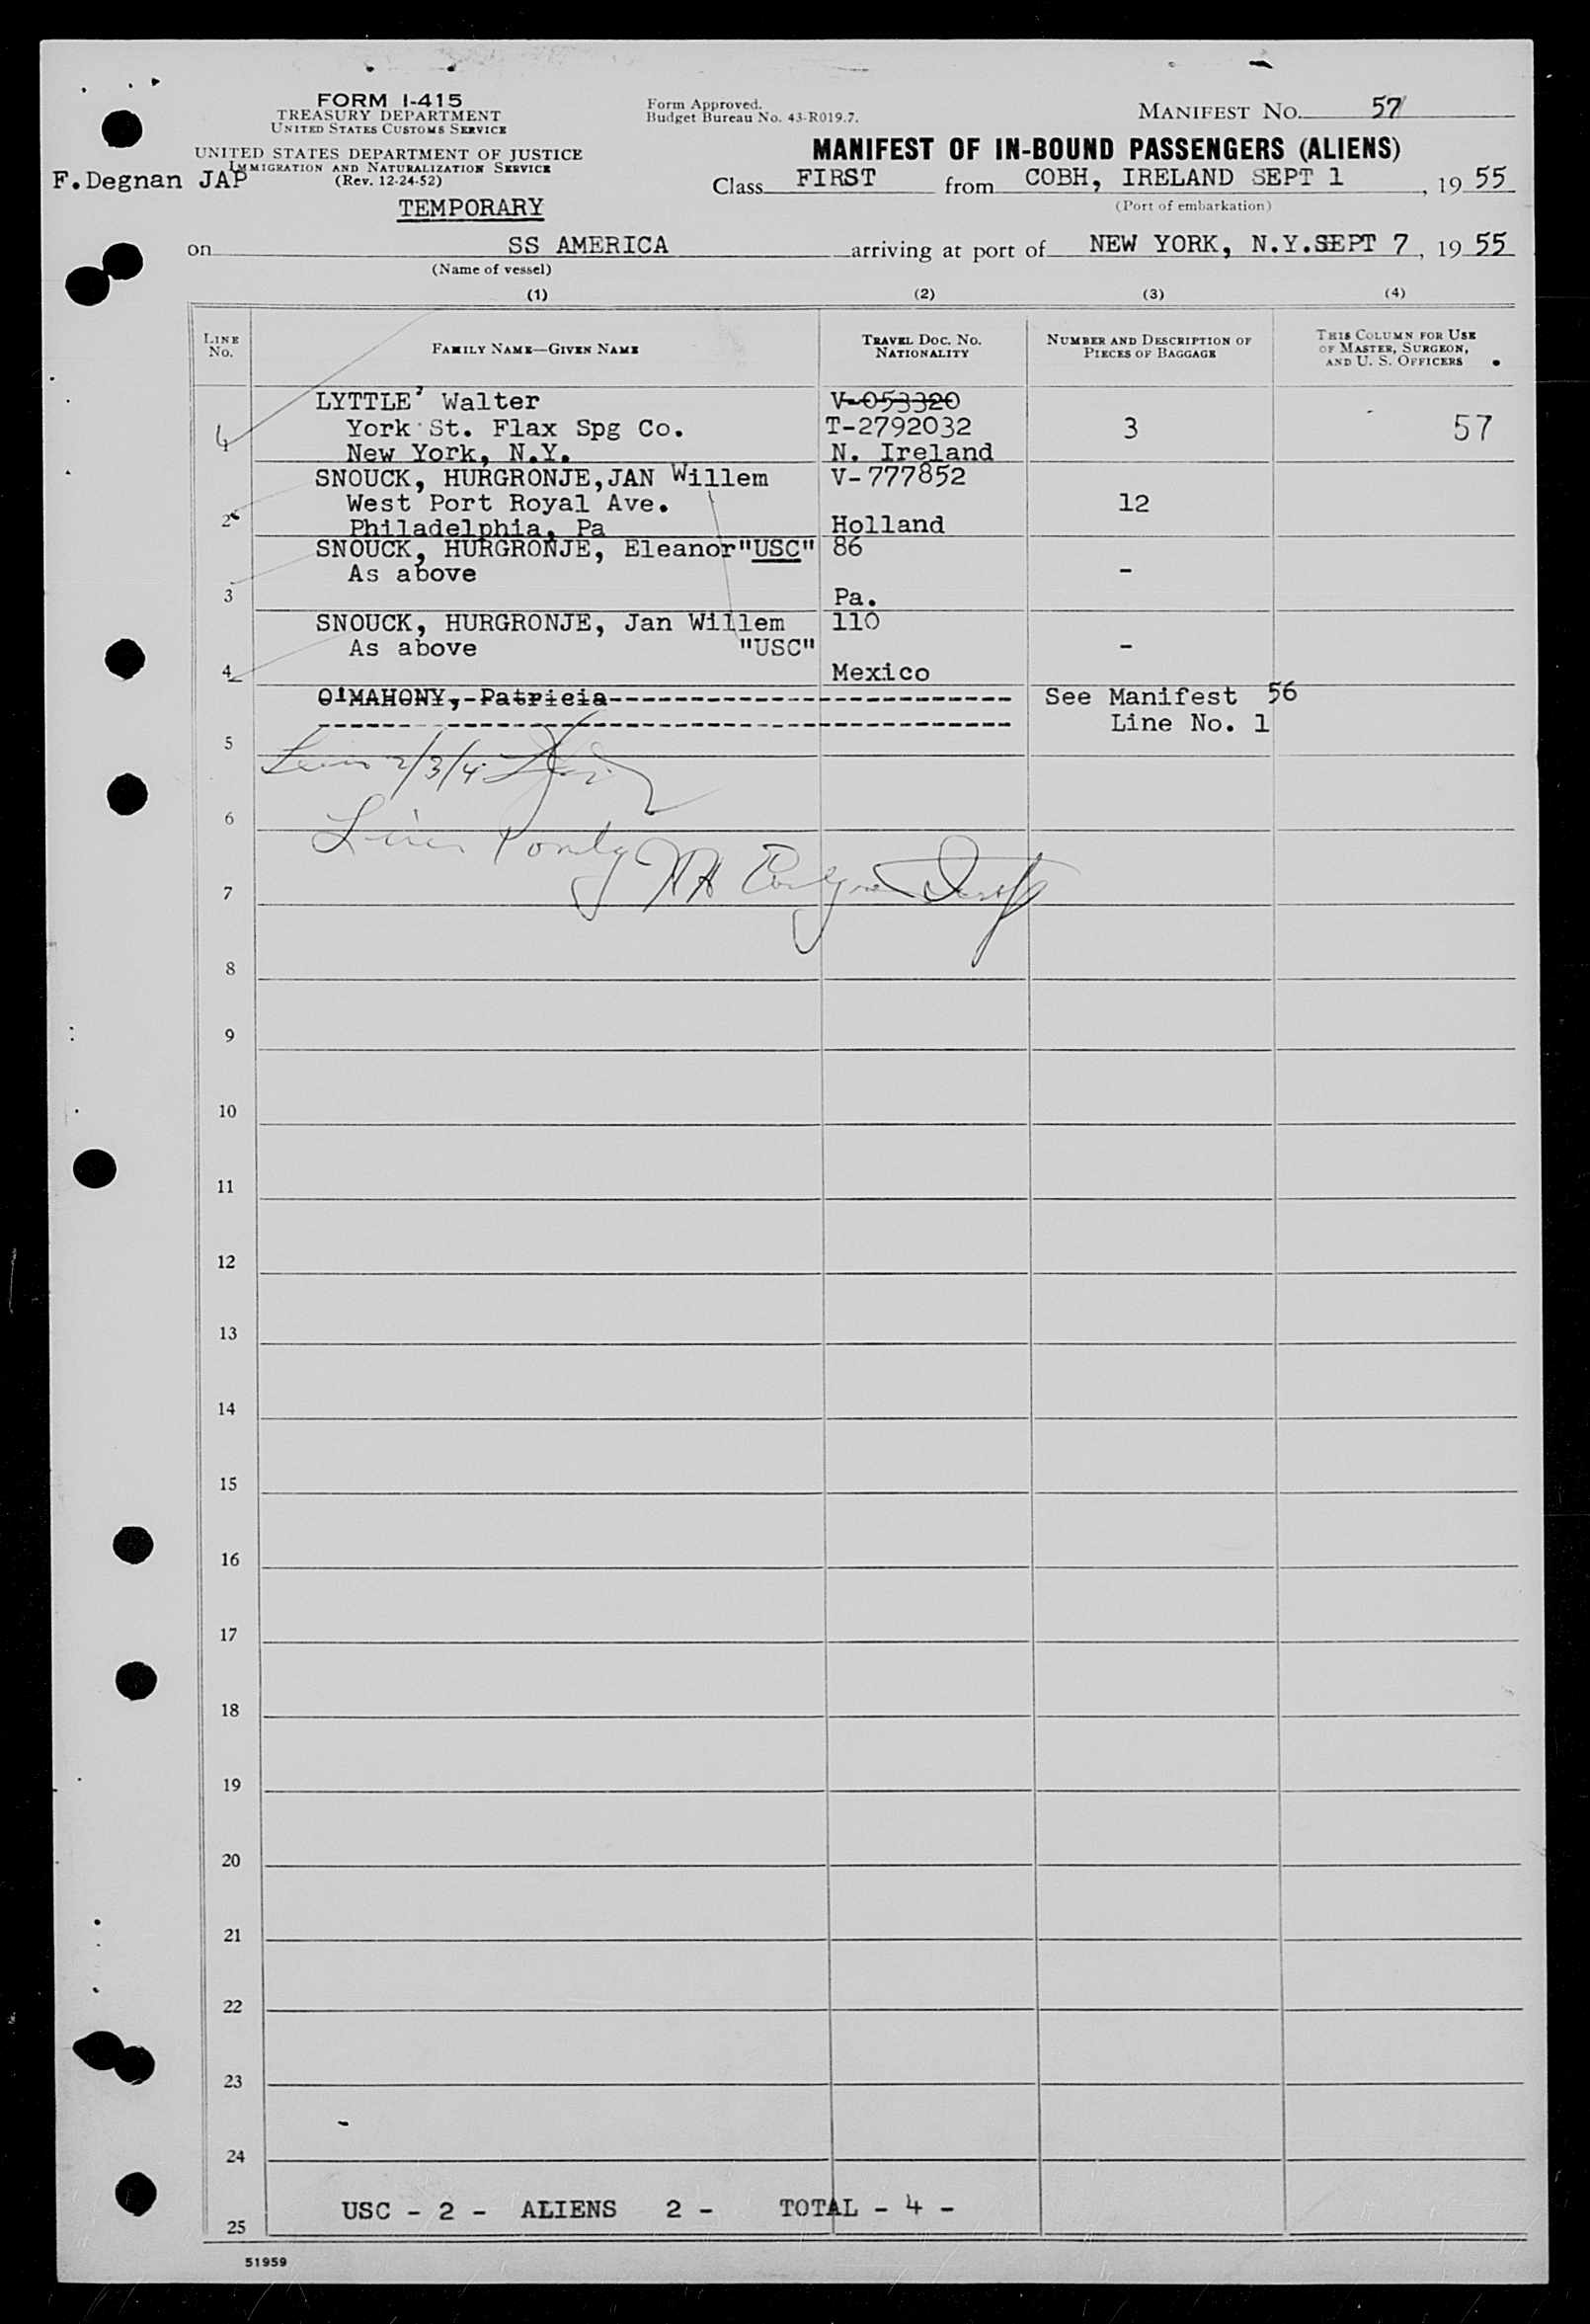 FORM I-415
TREASURY DEPARTMENT
UNITED STATES CUSTOMS SERVICE
Form Approved.
Budget Bureau No. 43-R019.7.
MANIFEST NO. 57
UNITED STATES DEPARTMENT OF JUSTICE
IMMIGRATION AND NATURALIZATION SERVICE
(Rev. 12-24-52)
F.Degnan JAP
MANIFEST OF IN-BOUND PASSENGERS (ALIENS)
Class FIRST from COBH, IRELAND SEPT 1, 19 55
(Port of embarkation)
TEMPORARY
on SS AMERICA arriving at port of NEW YORK, N.Y. SEPT 7, 19 55
(Name of vessel)
(1) (2) (3) (4)
LINE NO.
FAMILY NAME—GIVEN NAME
TRAVEL DOC. NO.
NATIONALITY
NUMBER AND DESCRIPTION OF
PIECES OF BAGGAGE
THIS COLUMN FOR USE
OF MASTER, SURGEON,
AND U. S. OFFICERS
LYTTLE' Walter V-053320
York St. Flax Spg Co. T-2792032 3 57
New York, N.Y. N. Ireland
SNOUCK, HURGRONJE, JAN Willem V-777852
West Port Royal Ave. 12
2 Philadelphia, Pa Holland
SNOUCK, HURGRONJE, Eleanor "USC" 86
As above -
3 Pa.
SNOUCK, HURGRONJE, Jan Willem 110
As above "USC" -
4 Mexico
O'MAHONY, Patricia See Manifest 56
Line No. 1
5
2/3/4
6
only
7
8
9
10
11
12
13
14
15
16
17
18
19
20
21
22
23
24
USC - 2 - ALIENS 2 - TOTAL - 4 -
25
51959